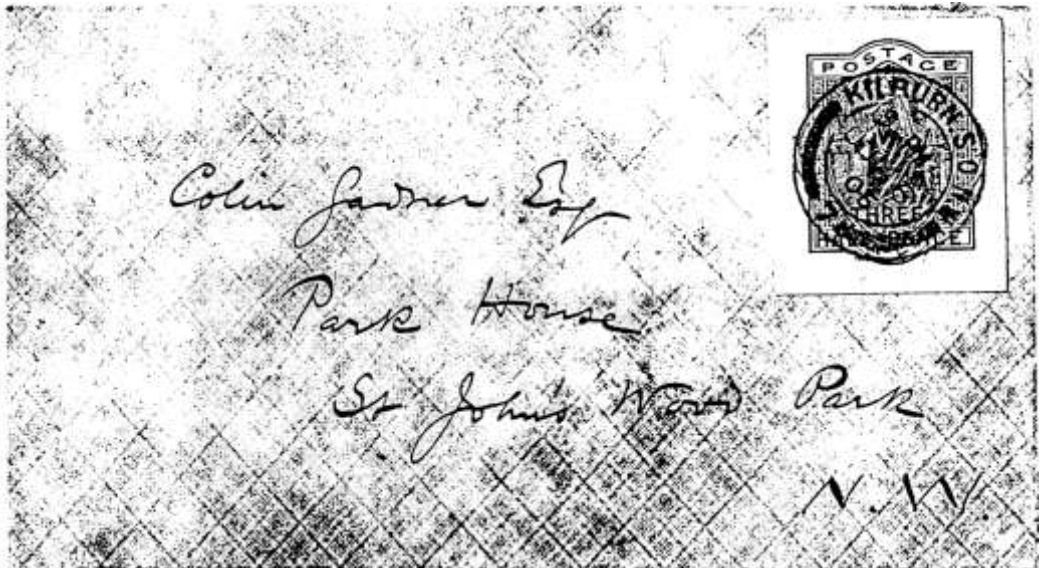 POSTAGE
KILBURN S.O.
THREE
Colin Gardner Esq
Park House
St John's Wood Park
N.W.